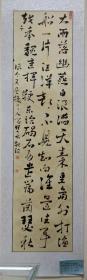 大雨落幽燕白浪滔天秦皇岛外打渔
船一片汪洋都不见知向谁边往事
越千年魏武挥鞭东临碣石有遗篇萧瑟秋
风今又是换了人间